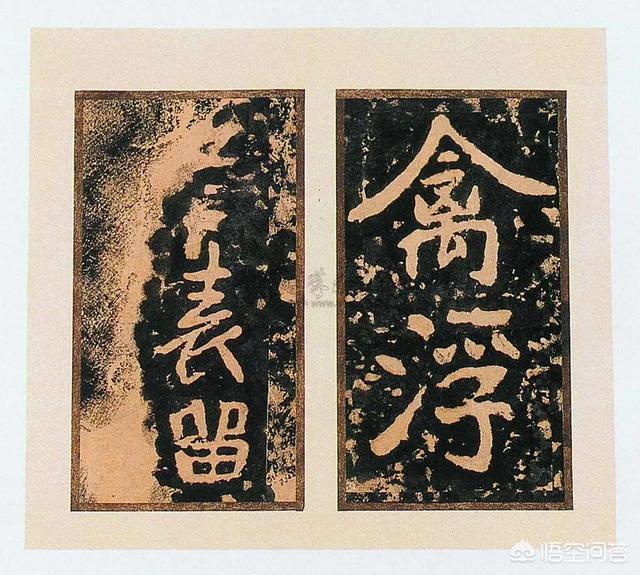 禽浮
表留
悟空问答